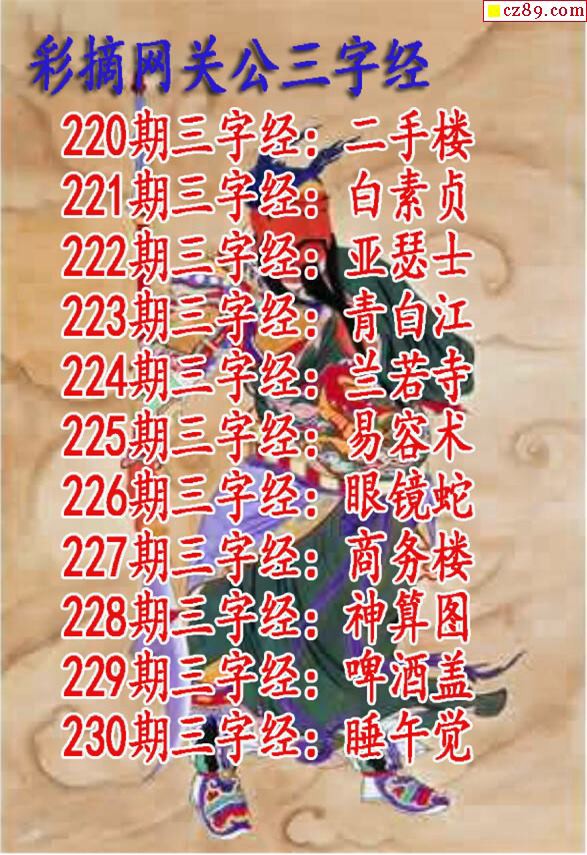 cz89.com
彩摘网关公三字经
220期三字经：二手楼
221期三字经：白素贞
222期三字经：亚瑟士
223期三字经：青白江
224期三字经：兰若寺
225期三字经：易容术
226期三字经：眼镜蛇
227期三字经：商务楼
228期三字经：神算图
229期三字经：啤酒盖
230期三字经：睡午觉